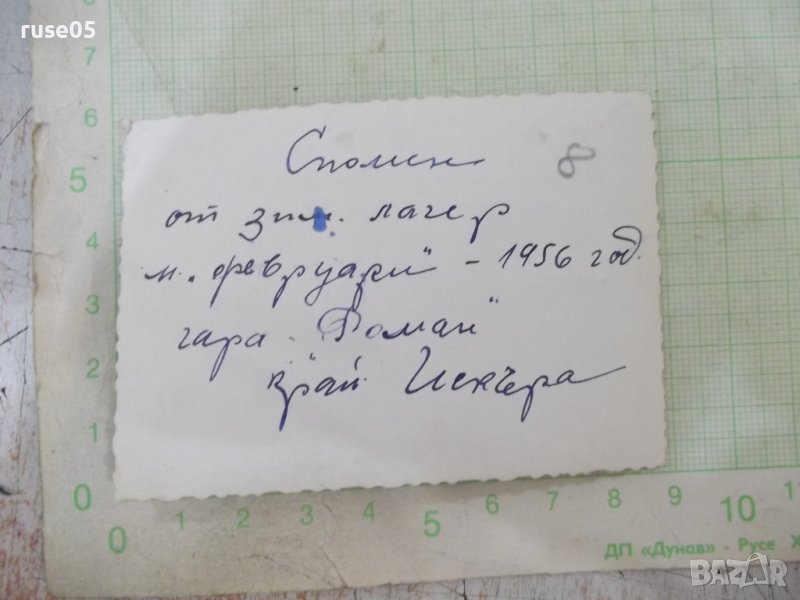 ruse05
Спомен
8
от зим. лагер
м. „февруари" - 1956 год.
гара „Роман"
край Искъра
6
7
6
5
4
3
2
1
0
0 1 2 3 4 5 6 7 8 9 10 11
ДП «Дунав» - Русе Х
BAZAR